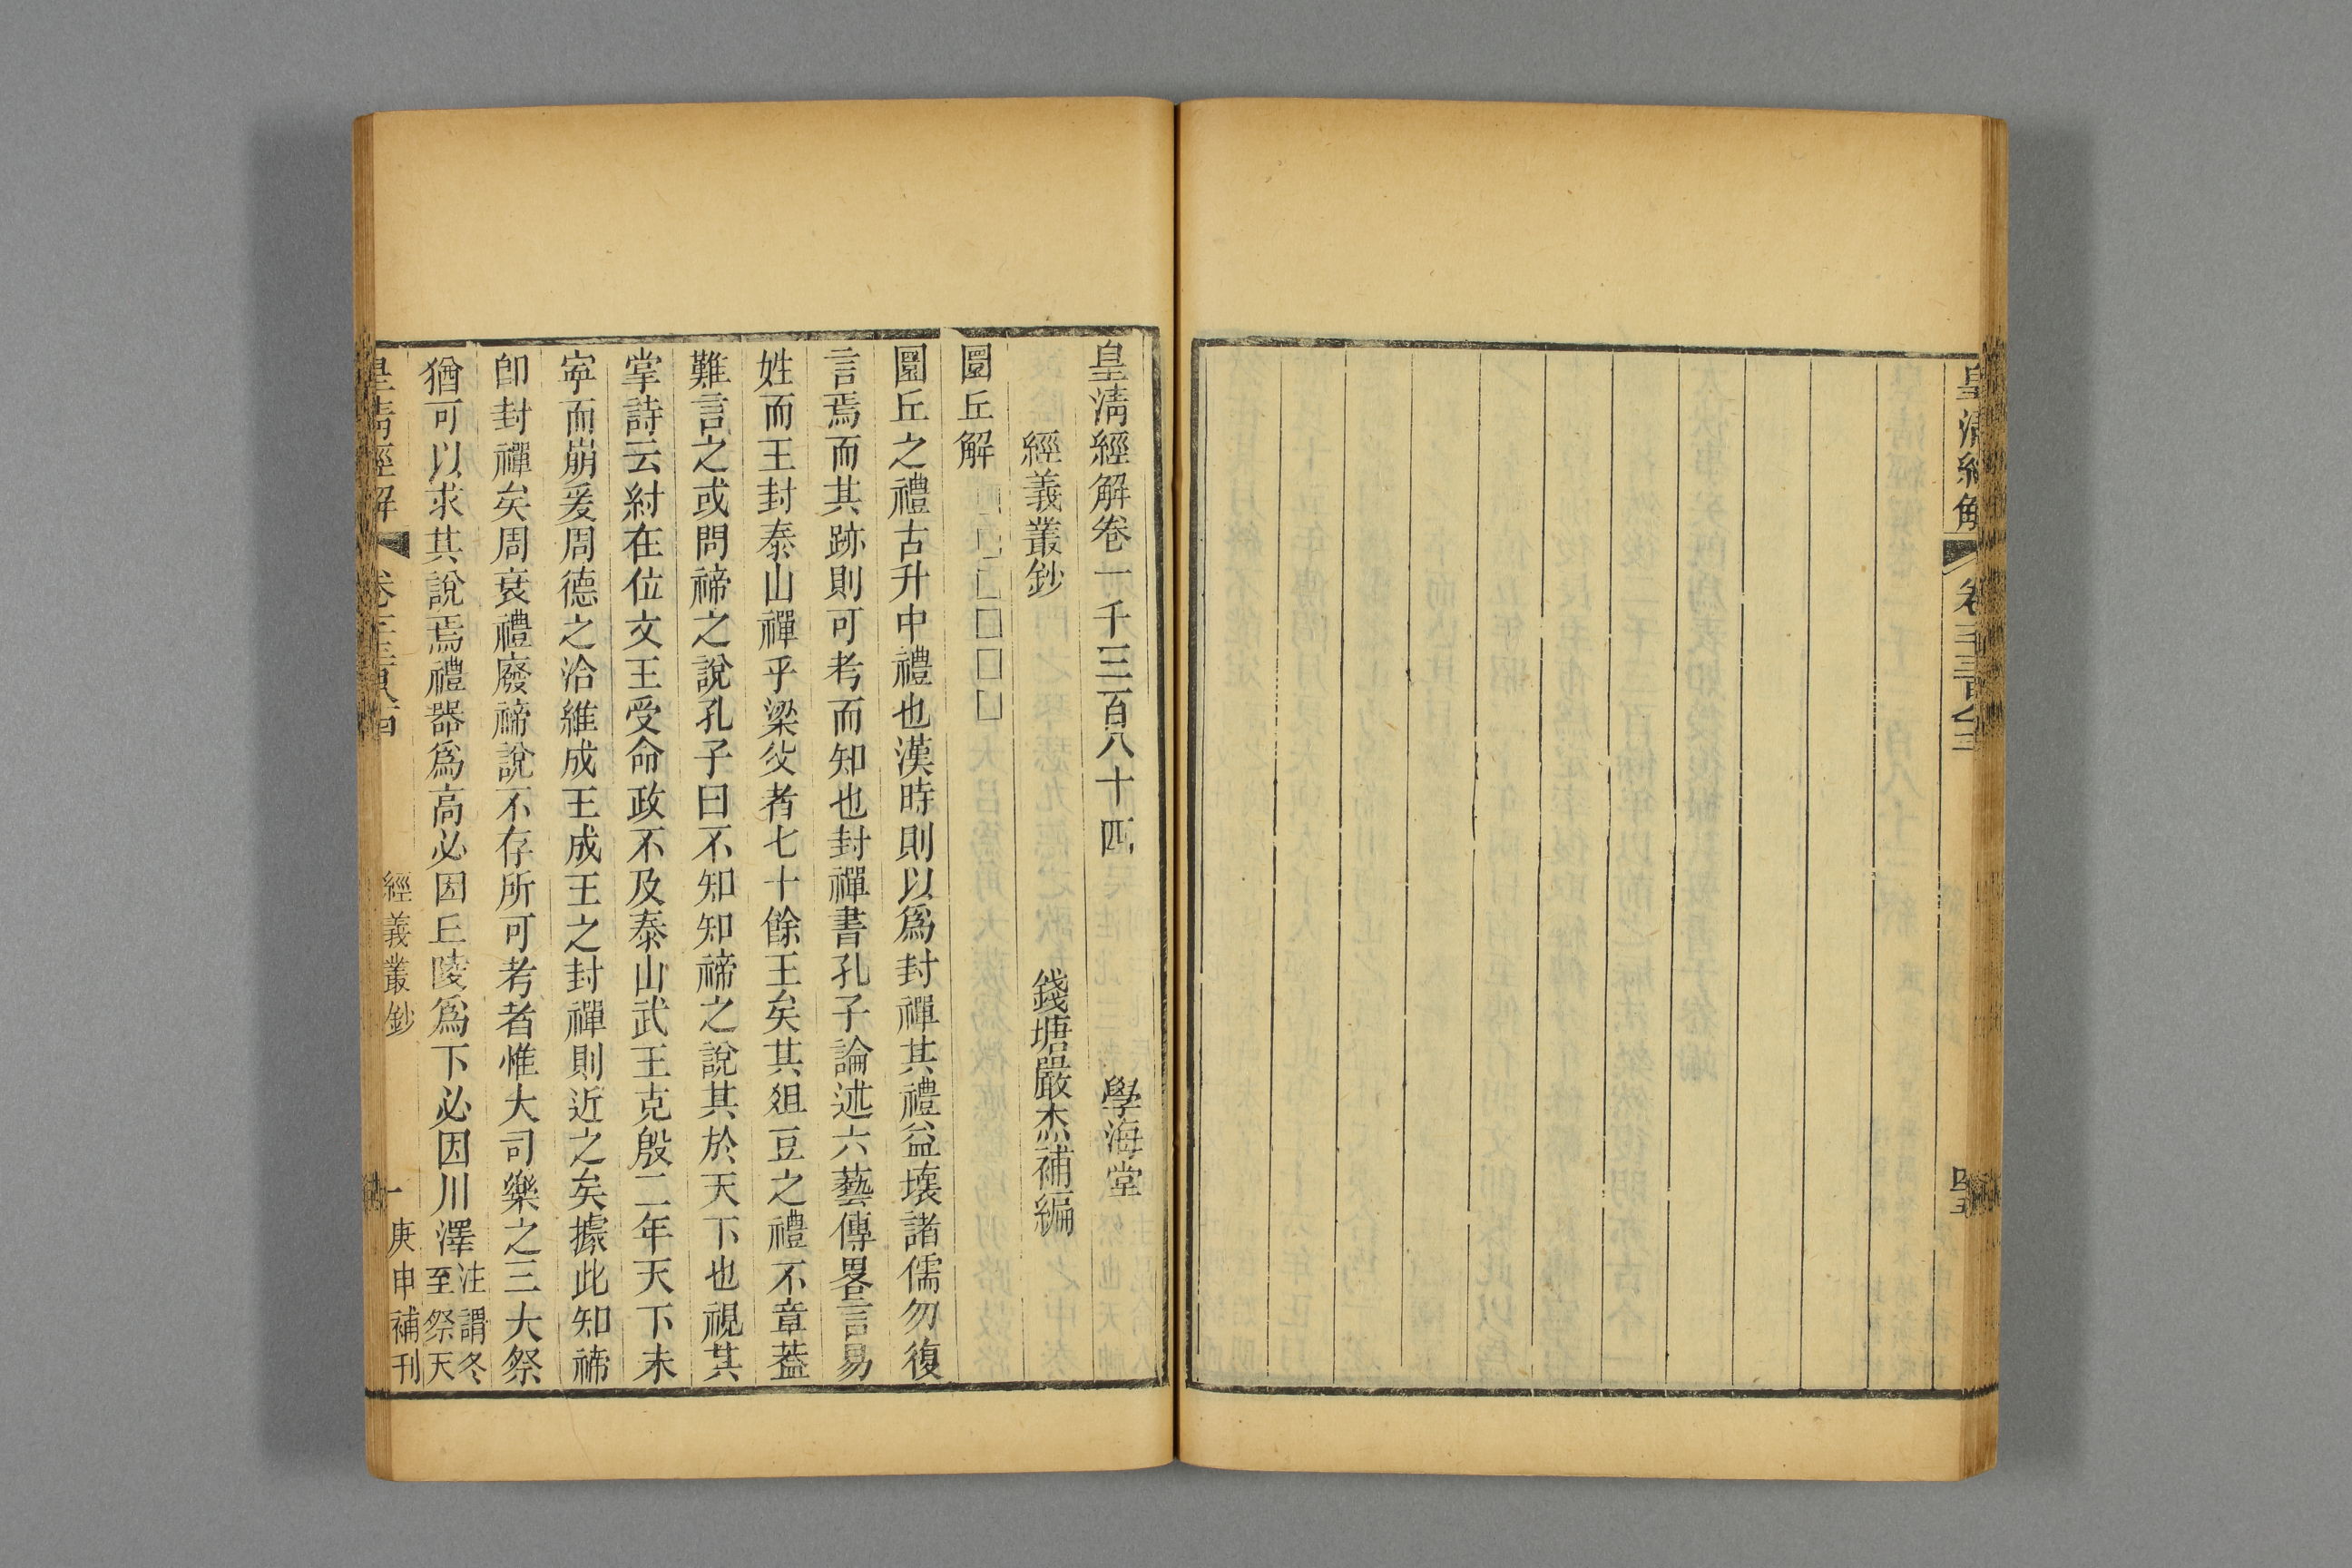 皇清經解
卷一千三百八十三
皇清經解卷一千三百八十四
學海堂
經義叢鈔
錢塘嚴杰補編
圜丘解
□□□□□□
圜丘之禮古升中禮也漢時則以爲封禪其禮益壞諸儒勿復
言焉而其跡則可考而知也封禪書孔子論述六藝傳畧言易
姓而王封泰山禪乎梁父者七十餘王矣其俎豆之禮不章葢
難言之或問禘之說孔子曰不知知禘之說其於天下也視其
掌詩云紂在位文王受命政不及泰山武王克殷二年天下未
寜而崩爰周德之洽維成王成王之封禪則近之矣據此知禘
卽封禪矣周衰禮廢禘說不存所可考者惟大司樂之三大祭
猶可以求其說焉禮器爲高必因丘陵爲下必因川澤
注謂冬
至祭天
皇清經解
經義叢鈔
一
庚申補刊